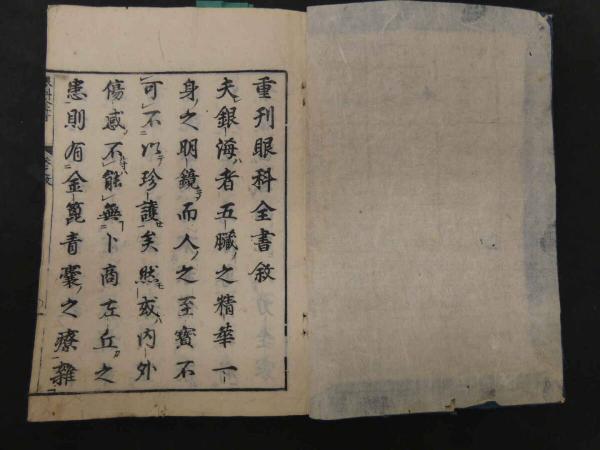 重刊眼科全書敘
夫銀海者五臟之精華一
身之明鏡而人之至寳不
可不以珍護矣然或内外
傷感不能無卜商左丘之
患則有金篦青囊之療雜